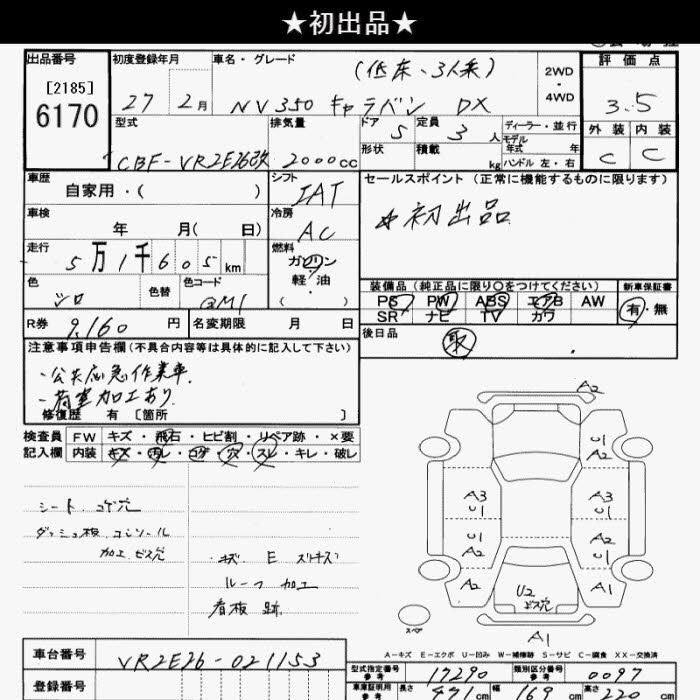 ★初出品★
出品番号 初度登録年月 車名・グレード (低床、3人乗) 2WD・4WD 評価点
[2185]
6170 27 2月 NV350 キャラバン DX 3.5
型式 排気量 ドア 5 定員 3人 ディーラー・並行 外装 内装
モデル年式 年
CBF-VR2E26改 2000cc 形状 積載 kg ハンドル 左・右 C C
車歴 自家用・( ) シフト IAT セールスポイント (正常に機能するものに限ります)
車検 年 月( 日) 冷房 AC ☆初出品
走行 5万1千605km 燃料 ガソリン 軽・油 ( )
色 シロ 色替 色コード QM1 装備品 (純正品に限り○をつけてください) 新車保証書
PS PW ABS エアB AW 有・無
SR ナビ TV カワ
R券 9,160円 名変期限 月 日 後日品 取
注意事項申告欄(不具合内容等は具体的に記入して下さい)
・公共応急作業車
・荷室加工あり
修復歴 有 [箇所 ]
検査員 FW キズ・飛石・ヒビ割・リペア跡・×要
記入欄 内装 キズ・汚レ・コゲ・穴・スレ・キレ・破レ
シート コゲ穴
ダッシュ板 コンソール
加工 ビス穴
・キズ E スリキズ
ルーフ 加工
看板 跡
A2
U1
A2
A3 A3
U1 U1
U1 U1
A2 A2
U1
A2 U2 A1
ビス穴
スペア
A1
A-キズ E-エクボ U-凹み W-補修跡 S-サビ C-腐食 XX-交換済
車台番号 VR2E26-021153
型式指定番号 参考 17290 類別区分番号 参考 0097
登録番号 車庫証明用 参考 長さ 491cm 幅 169cm 高さ 220cm